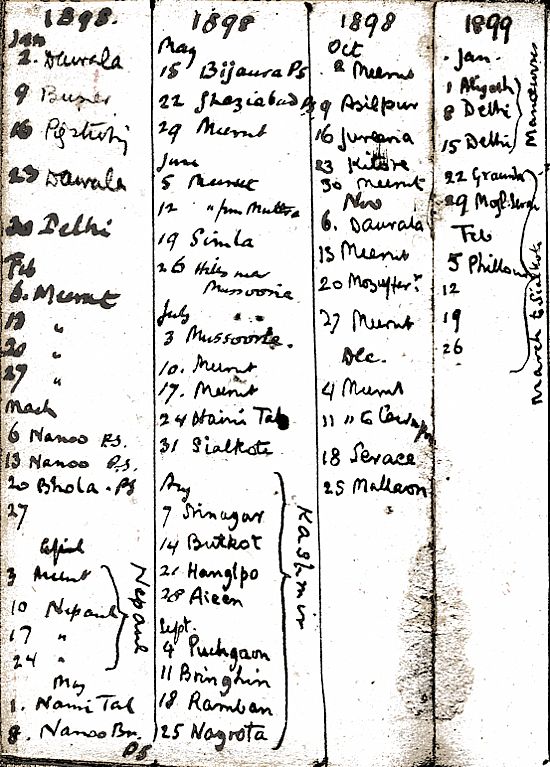 1898.
Jan
2. Dawrala
9
16
23 Dawrala
30 Delhi
Feb
6. Meerut
13 "
20 "
27 "
March
6 Nanoo P.S.
13 Nanoo P.S.
20 Bhola - PS
27
April
3 Meerut
10 Nepaul
17 "
24 "
Nepaul
May
1. Naini Tal
8. Nanoo Bn.
PS
1898
May
15 Bijaura PS
22 Ghaziabad PS
29 Meerut
June
5 Meerut
12 " from Muttra
19 Simla
26 Hills near
Mussoorie
July
3 Mussoorie.
10. Meerut
17. Meerut
24 Naini Tal
31 Sialkote
Aug
7 Srinagar
14 Butkot
21 Hanglpo
28 Aieen
Sept.
4 Puchgaon
11 Bringhin
18 Ramban
25 Nagrota
Kashmir
1898
Oct
2 Meerut
9 Asilpur
16
23 Kitore
30 Meerut
Nov
6. Daurala
13 Meerut
20
27 Meerut
Dec.
4 Meerut
11 " to
18 Serace
25 Mallaon
1899
Jan.
1 Aligarh
8 Delhi
15 Delhi
Manoeuvres
22
29
Feb
5 Phillour
12
19
26
March to Sialkote